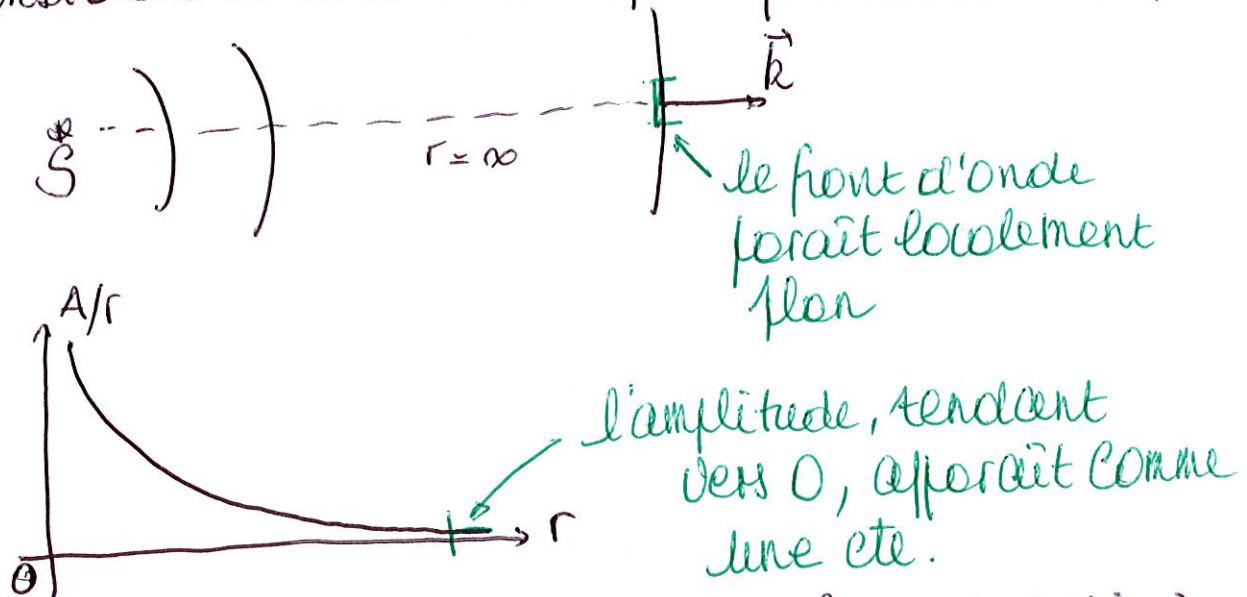 k
S
r = ∞
le front d'onde
paraît localement
plan
A/r
l'amplitude, tendant
vers 0, apparaît comme
une cte.
r
O